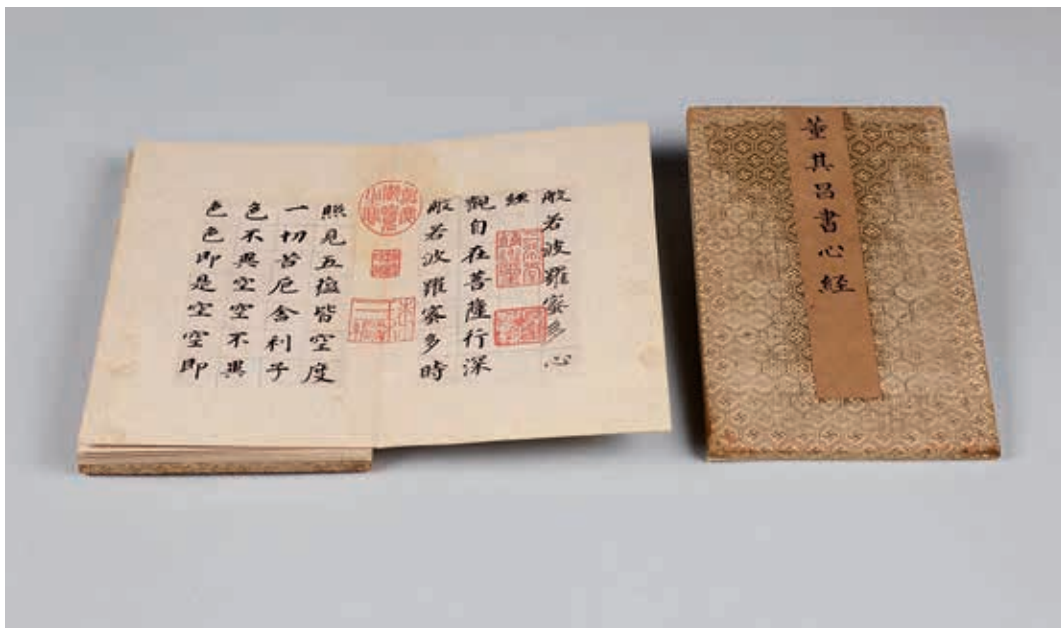 般若波羅蜜多心
經
觀自在菩薩行深
般若波羅蜜多時
照見五蕴皆空度
一切苦厄舍利子
色不異空空不異
色色即是空空即
董其昌書心經